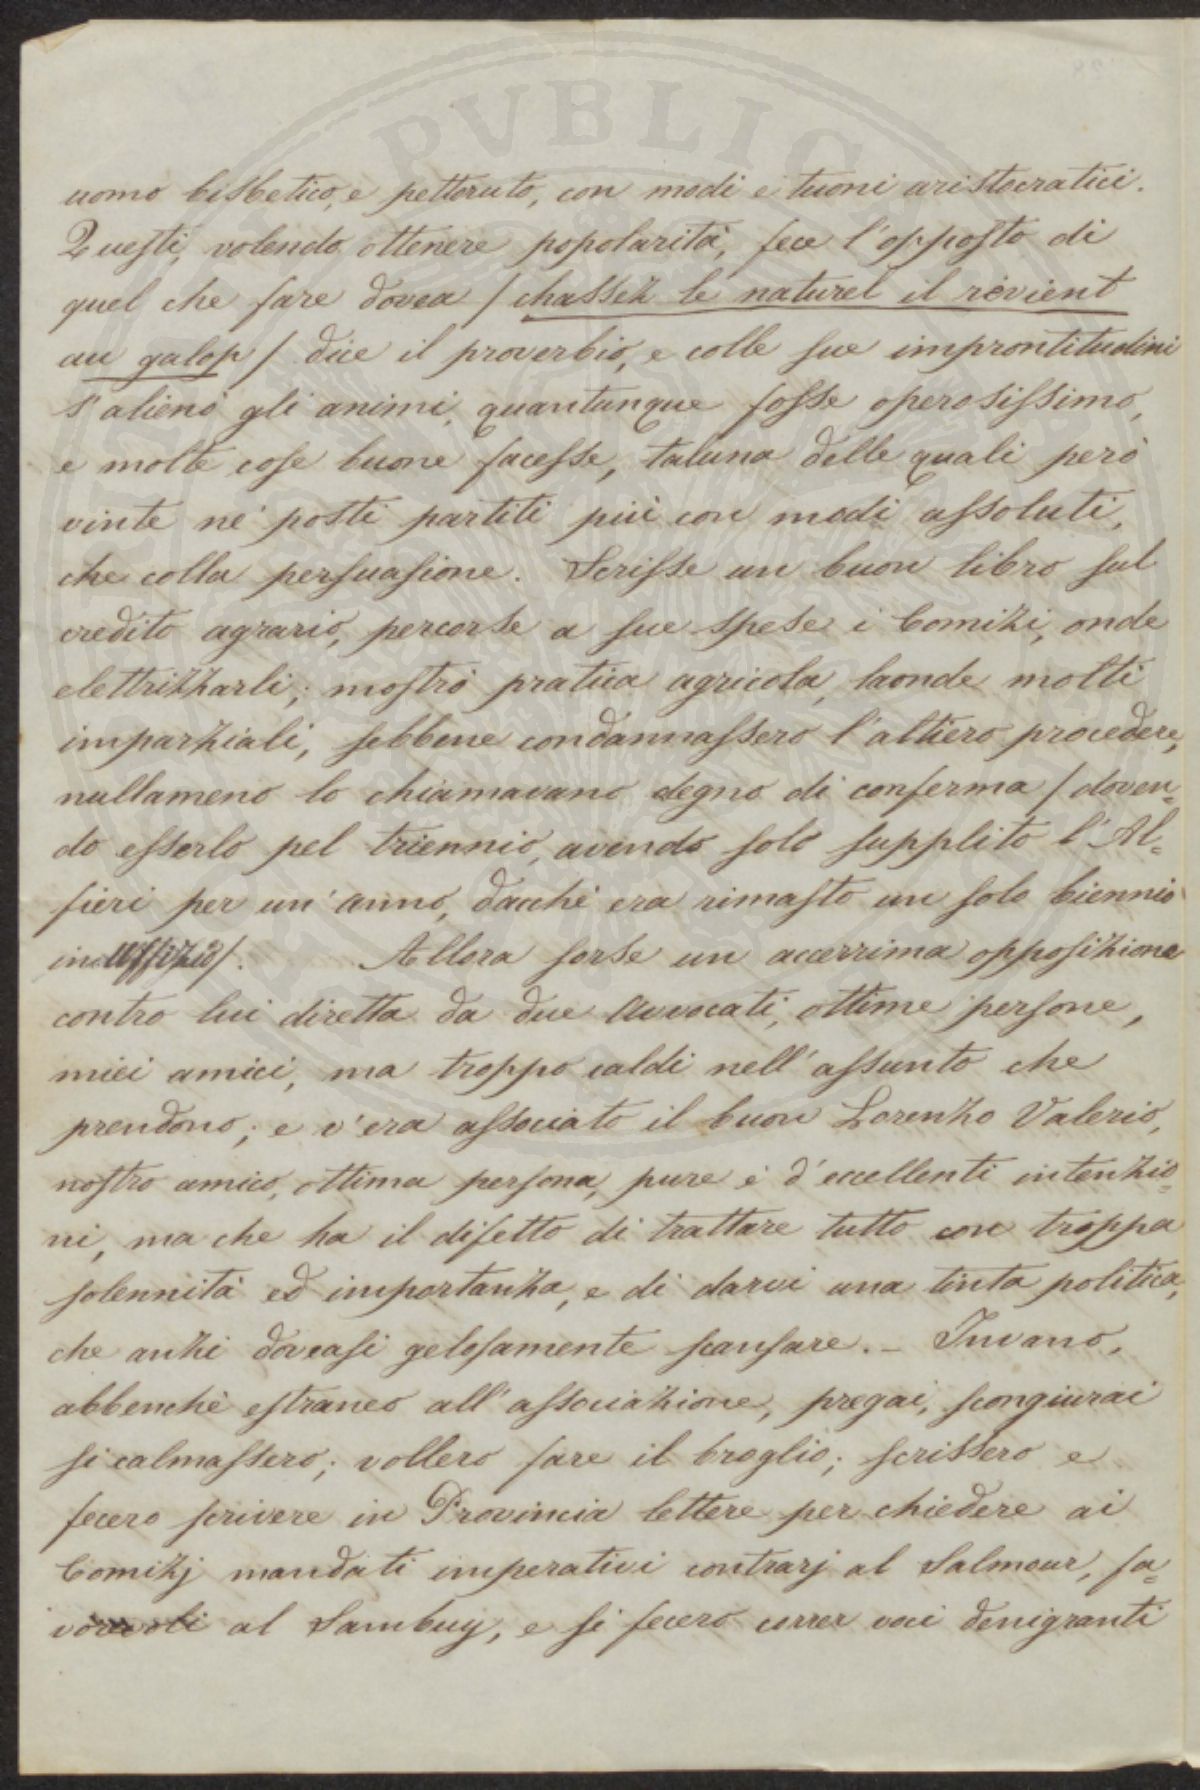 PVBLICA
uomo bisbetico, e pettoruto, con modi e tuoni aristocratici.
Questi, volendo ottenere popolarità, fece l'opposto di
quel che fare dovea / chassez le naturel il revient
au galop / dice il proverbio, e colle sue improntitudini
s'alienò gli animi, quantunque fosse operosissimo,
e molte cose buone facesse, taluna delle quali però
vinte ne' posti partiti più con modi assoluti,
che colla persuasione. Scrisse un buon libro sul
credito agrario, percorse a sue spese i Comizi, onde
elettrizzarli; mostrò pratica agricola, laonde molti
imparziali, sebbene condannassero l'altiero procedere,
nullameno lo chiamavano degno di conferma / doven=
do esserlo pel triennio, avendo solo supplito l'Al=
fieri per un'anno, dacchè era rimasto un solo biennio
in uffizio /. Allora sorse un accerrima opposizione
contro lui diretta da due Avvocati, ottime persone,
miei amici, ma troppo caldi nell'assunto che
prendono; e v'era associato il buon Lorenzo Valerio,
nostro amico, ottima persona, pure e d'eccellenti intenzio=
ni, ma che ha il difetto di trattare tutto con troppa
solennità ed importanza, e di darvi una tinta politica,
che anzi doveasi gelosamente scansare. - Invano,
abbenchè estraneo all'associazione, pregai, scongiurai
si calmassero; vollero fare il broglio; scrissero e
fecero scrivere in Provincia lettere per chiedere ai
Comizj mandati imperativi contrarj al Salmour, fa=
vorevoli al Sambuy, e si fecero correr voci denigranti